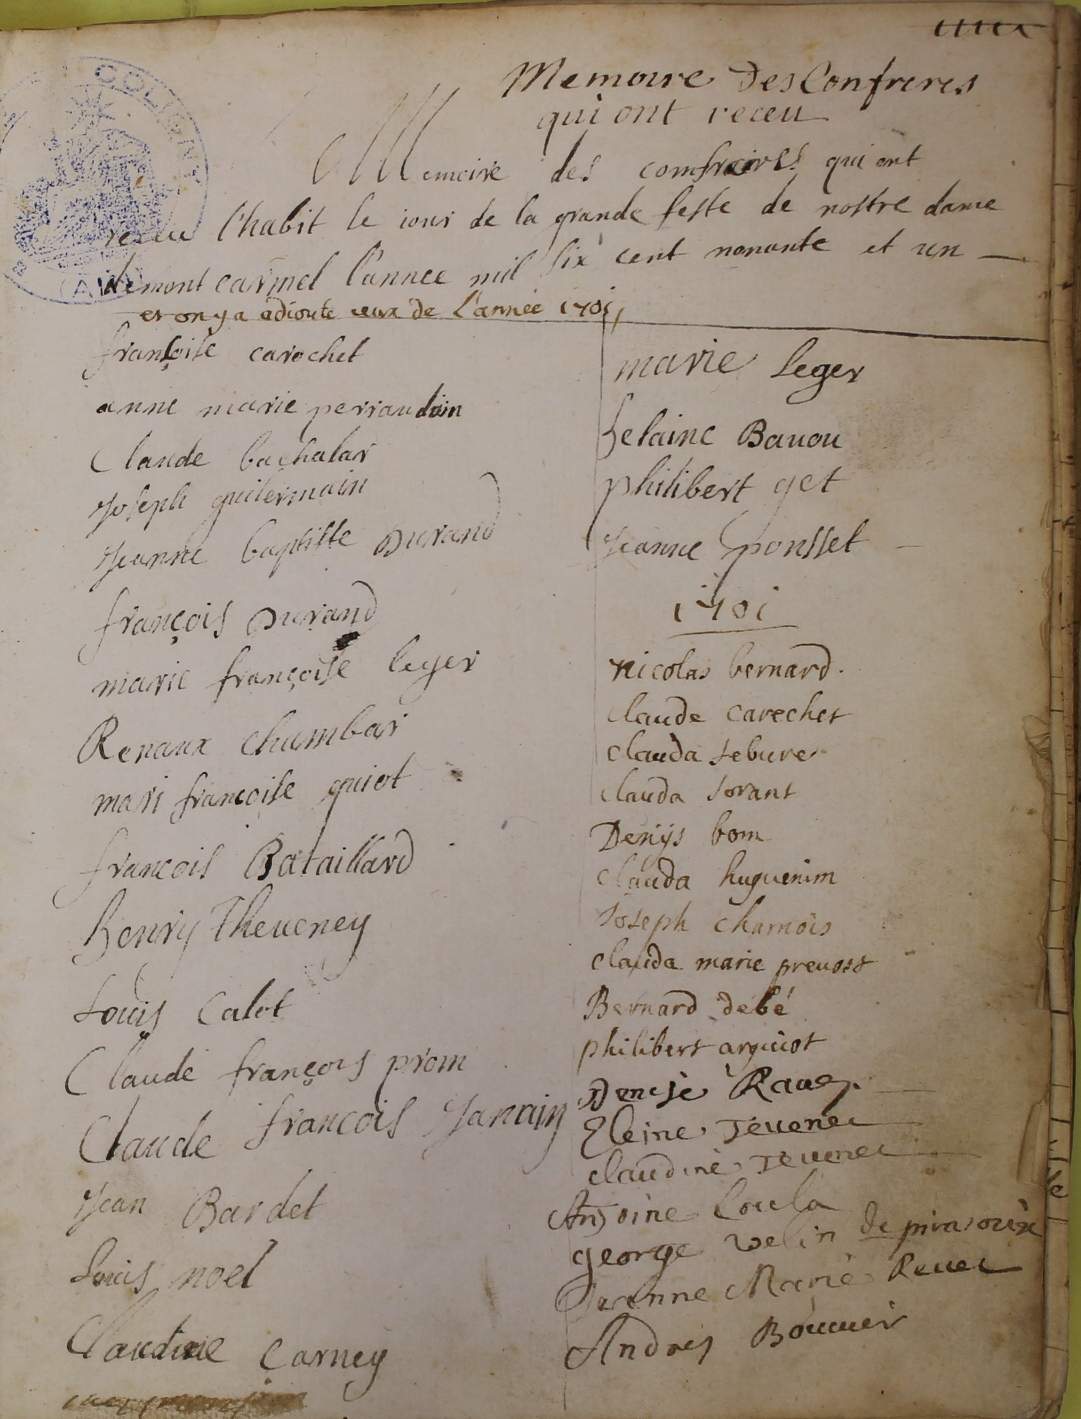 Memoire Des Confreres
qui ont receu
Memoire des comfreires qui ont
receu l'habit le iour de la grande feste de nostre dame
de mont carmel l'annee mil six cent nonante et un
et on y a adiouté ceux de l'année 1701,
françoise carochet
anne marie perraudin
Claude bachalar
Joseph guilermain
Jeanne baptiste Durand
françois Durand
marie françoise leger
Renaux Chumbar
mari françoise guiot
francois Bataillard
henry Theueney
Louis Calot
Claude françois prom
Claude francois Janain
Jean Bardet
Louis noel
Claudine Carney
marie leger
helaine Bauou
philibert get
Jeanne ponsset
1701
nicolas bernard.
claude carechet
clauda lebure
clauda lorant
Denijs bom
clauda huguenim
Joseph chamois
clauda marie preuost
Bernard debé
philibert arguiot
Denise Rauey
Eleine Teuenet
claudine Teuenet
Antoine Coula
george velin de
Jeanne Marie Reuet
Andrey Bouuier
COLIGNY
(AIN)